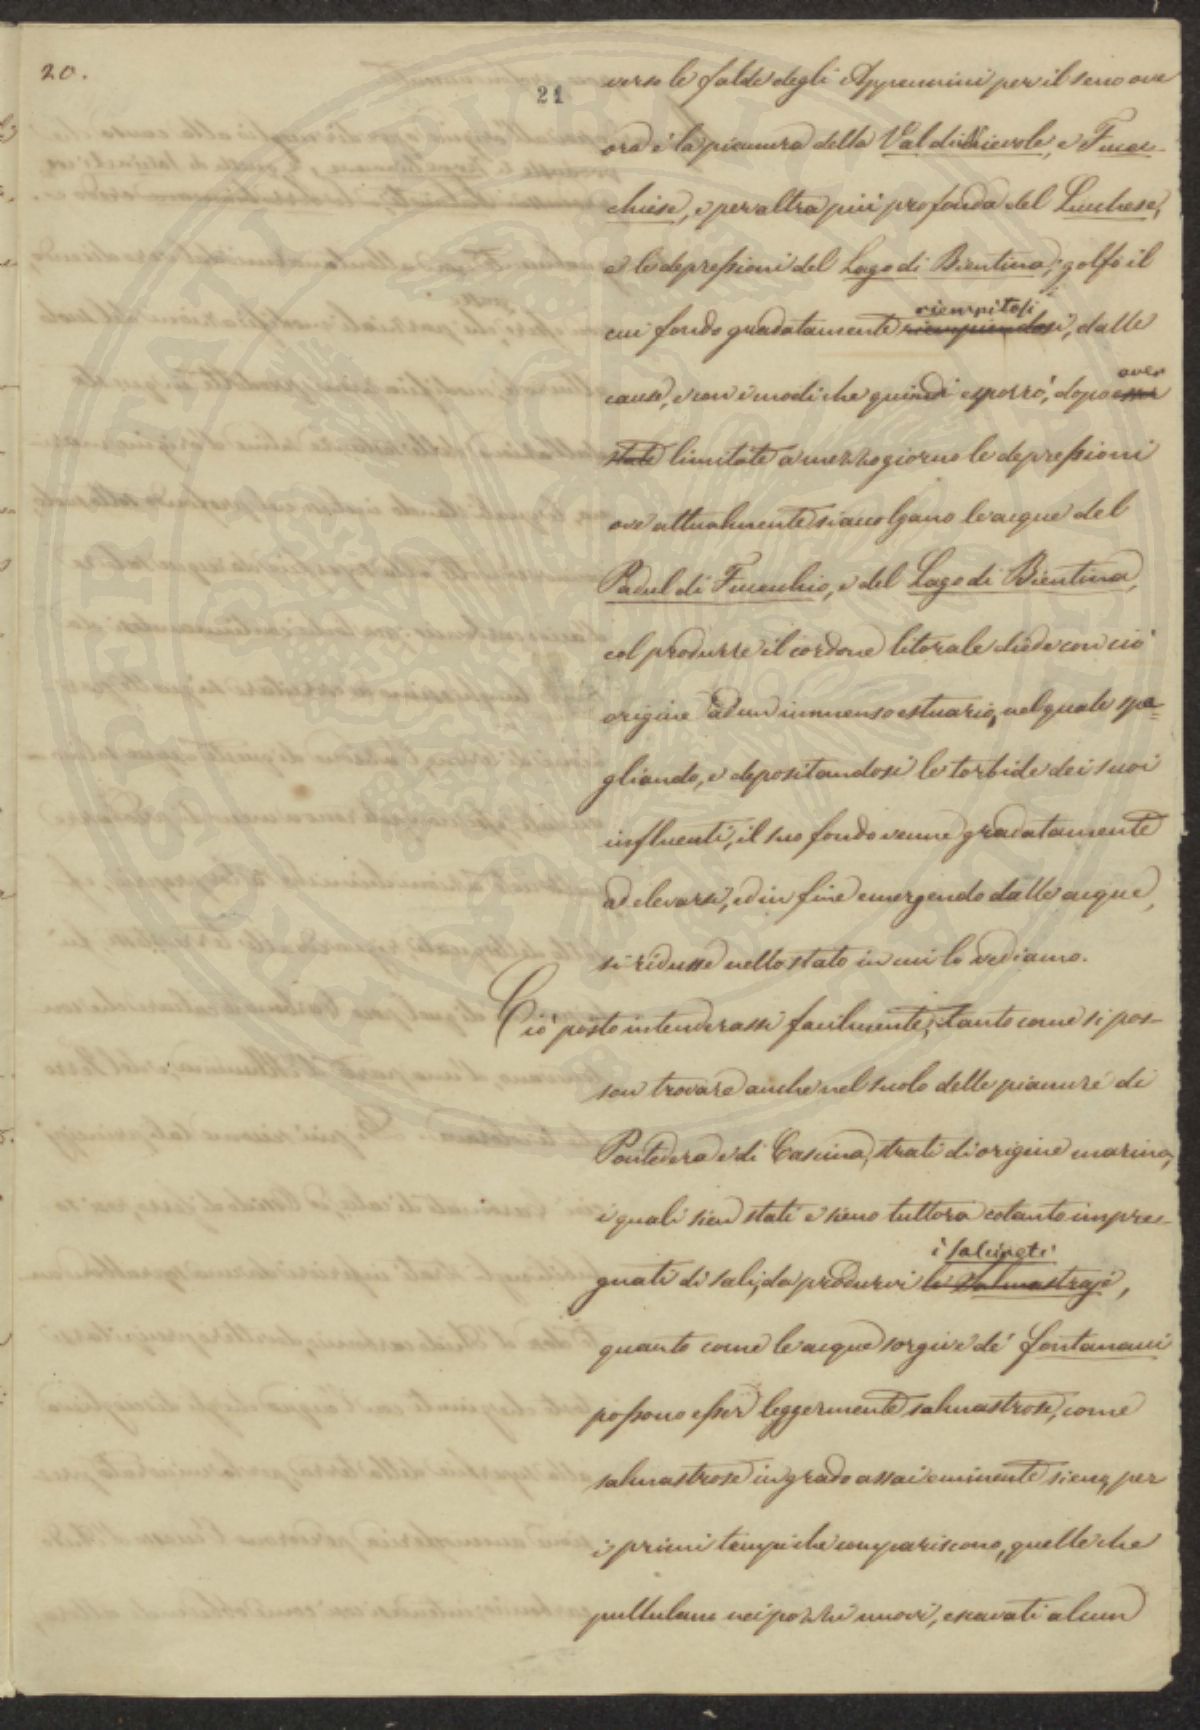 20.
21
verso le falde degli Appennini per il seno ove
ora è la pianura della Val di Nievole, e Fucec-
chiese, e per altra più profonda del Lucchese,
e le depressioni del Lago di Bientina; golfo il
riempitosi
cui fondo gradatamente riempiendosi, dalle
aver
cause, e con i modi che quindi esporrò, dopo esser
state limitate a mezzogiorno le depressioni
ove attualmente si accolgano le acque del
Padul di Fucecchio, e del Lago di Bientina,
col produrre il cordone litorale diede con ciò
origine ad un immenso estuario, nel quale spa=
gliando, e depositandosi le torbide dei suoi
influenti, il suo fondo venne gradatamente
ad elevarsi, ed in fine emergendo dalle acque,
si ridusse nello stato in cui lo vediamo.
Ciò posto intenderassi facilmente, tanto come si pos-
son trovare anche nel suolo delle pianure di
Pontedera e di Cascina, strati di origine marina,
i quali sien stati e sieno tuttora cotanto impre-
i salineti
gnati di sali, da produrvi le Salmastraje,
quanto come le acque sorgive de' fontanacci
possono esser leggermente salmastrose, come
salmastrose in grado assai eminente sieno, per
i primi tempi che compariscono, quelle che
pullulano nei pozzi nuovi, escavati al cun